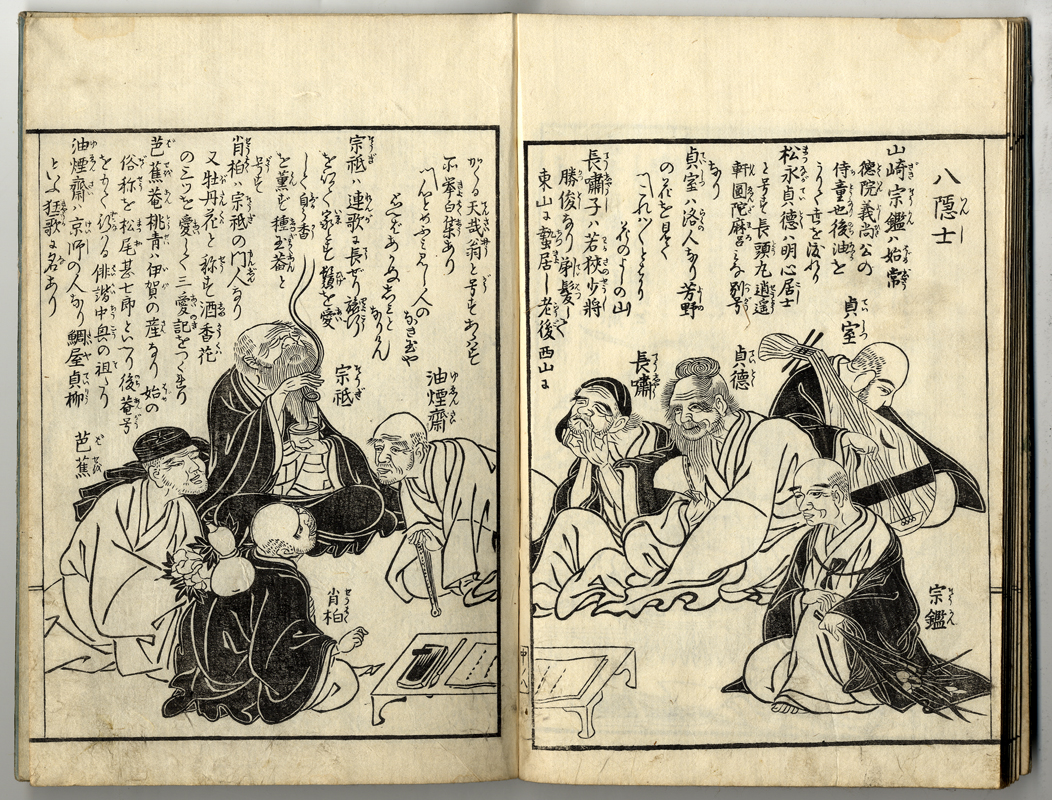 八隠士
山崎宗鑑ハ始常
徳院義尚公の
侍童也後油を
うりて世を渡れり
松永貞徳ハ明心居士
と号す長頭丸逍遥
軒圓陀麻呂ミな別号
なり
貞室ハ洛人なり芳野
の花を見て
これハ〱とはかり
花のよしの山
長嘯子ハ若狭少将
勝俊なり剃髪して
東山に蟄居し老後西山に
かくる天哉翁と号すあらハす
所挙白集あり
人の
なきまや
なりけん
宗祇ハ連歌に長せり
して自ら香
を薫す種玉菴と
号す
肖柏ハ宗祇の門人なり
又牡丹花と称す酒香花
の三ツを愛して三愛記をつくれり
芭蕉菴桃青ハ伊賀の産なり始の
俗称を松尾甚七郎といへり後菴号
をもて行る俳諧中興の祖たり
油煙齋ハ京師の人なり鯛屋貞柳
といふ狂歌に名あり
貞室
貞德
長嘯
宗鑑
油煙齋
宗祇
肖柏
芭蕉